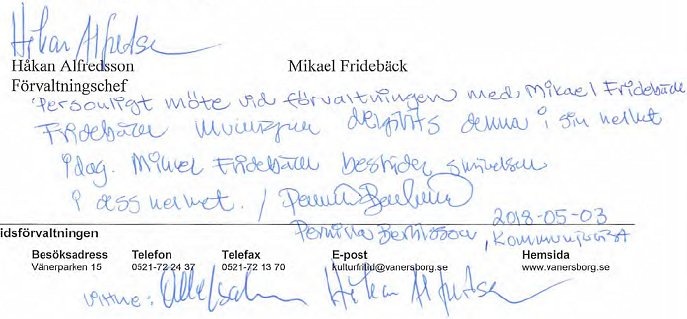 Håkan Alfredsson
Håkan Alfredsson Mikael Fridebäck
Förvaltningschef
Personligt möte vid förvaltningen med Mikael Fridebäck
Fridebäck delgivits denna i sin helhet
idag. Mikael Fridebäck bestrider skrivelsen
i dess helhet. /
2018-05-03
idsförvaltningen Pernilla Bertilsson, Kommunjurist
Besöksadress Telefon Telefax E-post Hemsida
Vänerparken 15 0521-72 24 37 0521-72 13 70 kulturfritid@vanersborg.se www.vanersborg.se
Vittne: Håkan Alfredsson